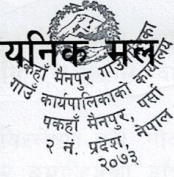 यनिक मल
पकहाँ मैनपुर गाउँपालिका
गाउँ कार्यपालिकाको कार्यालय
पकहाँ मैनपुर, पर्सा
२ नं. प्रदेश, नेपाल
२०७३